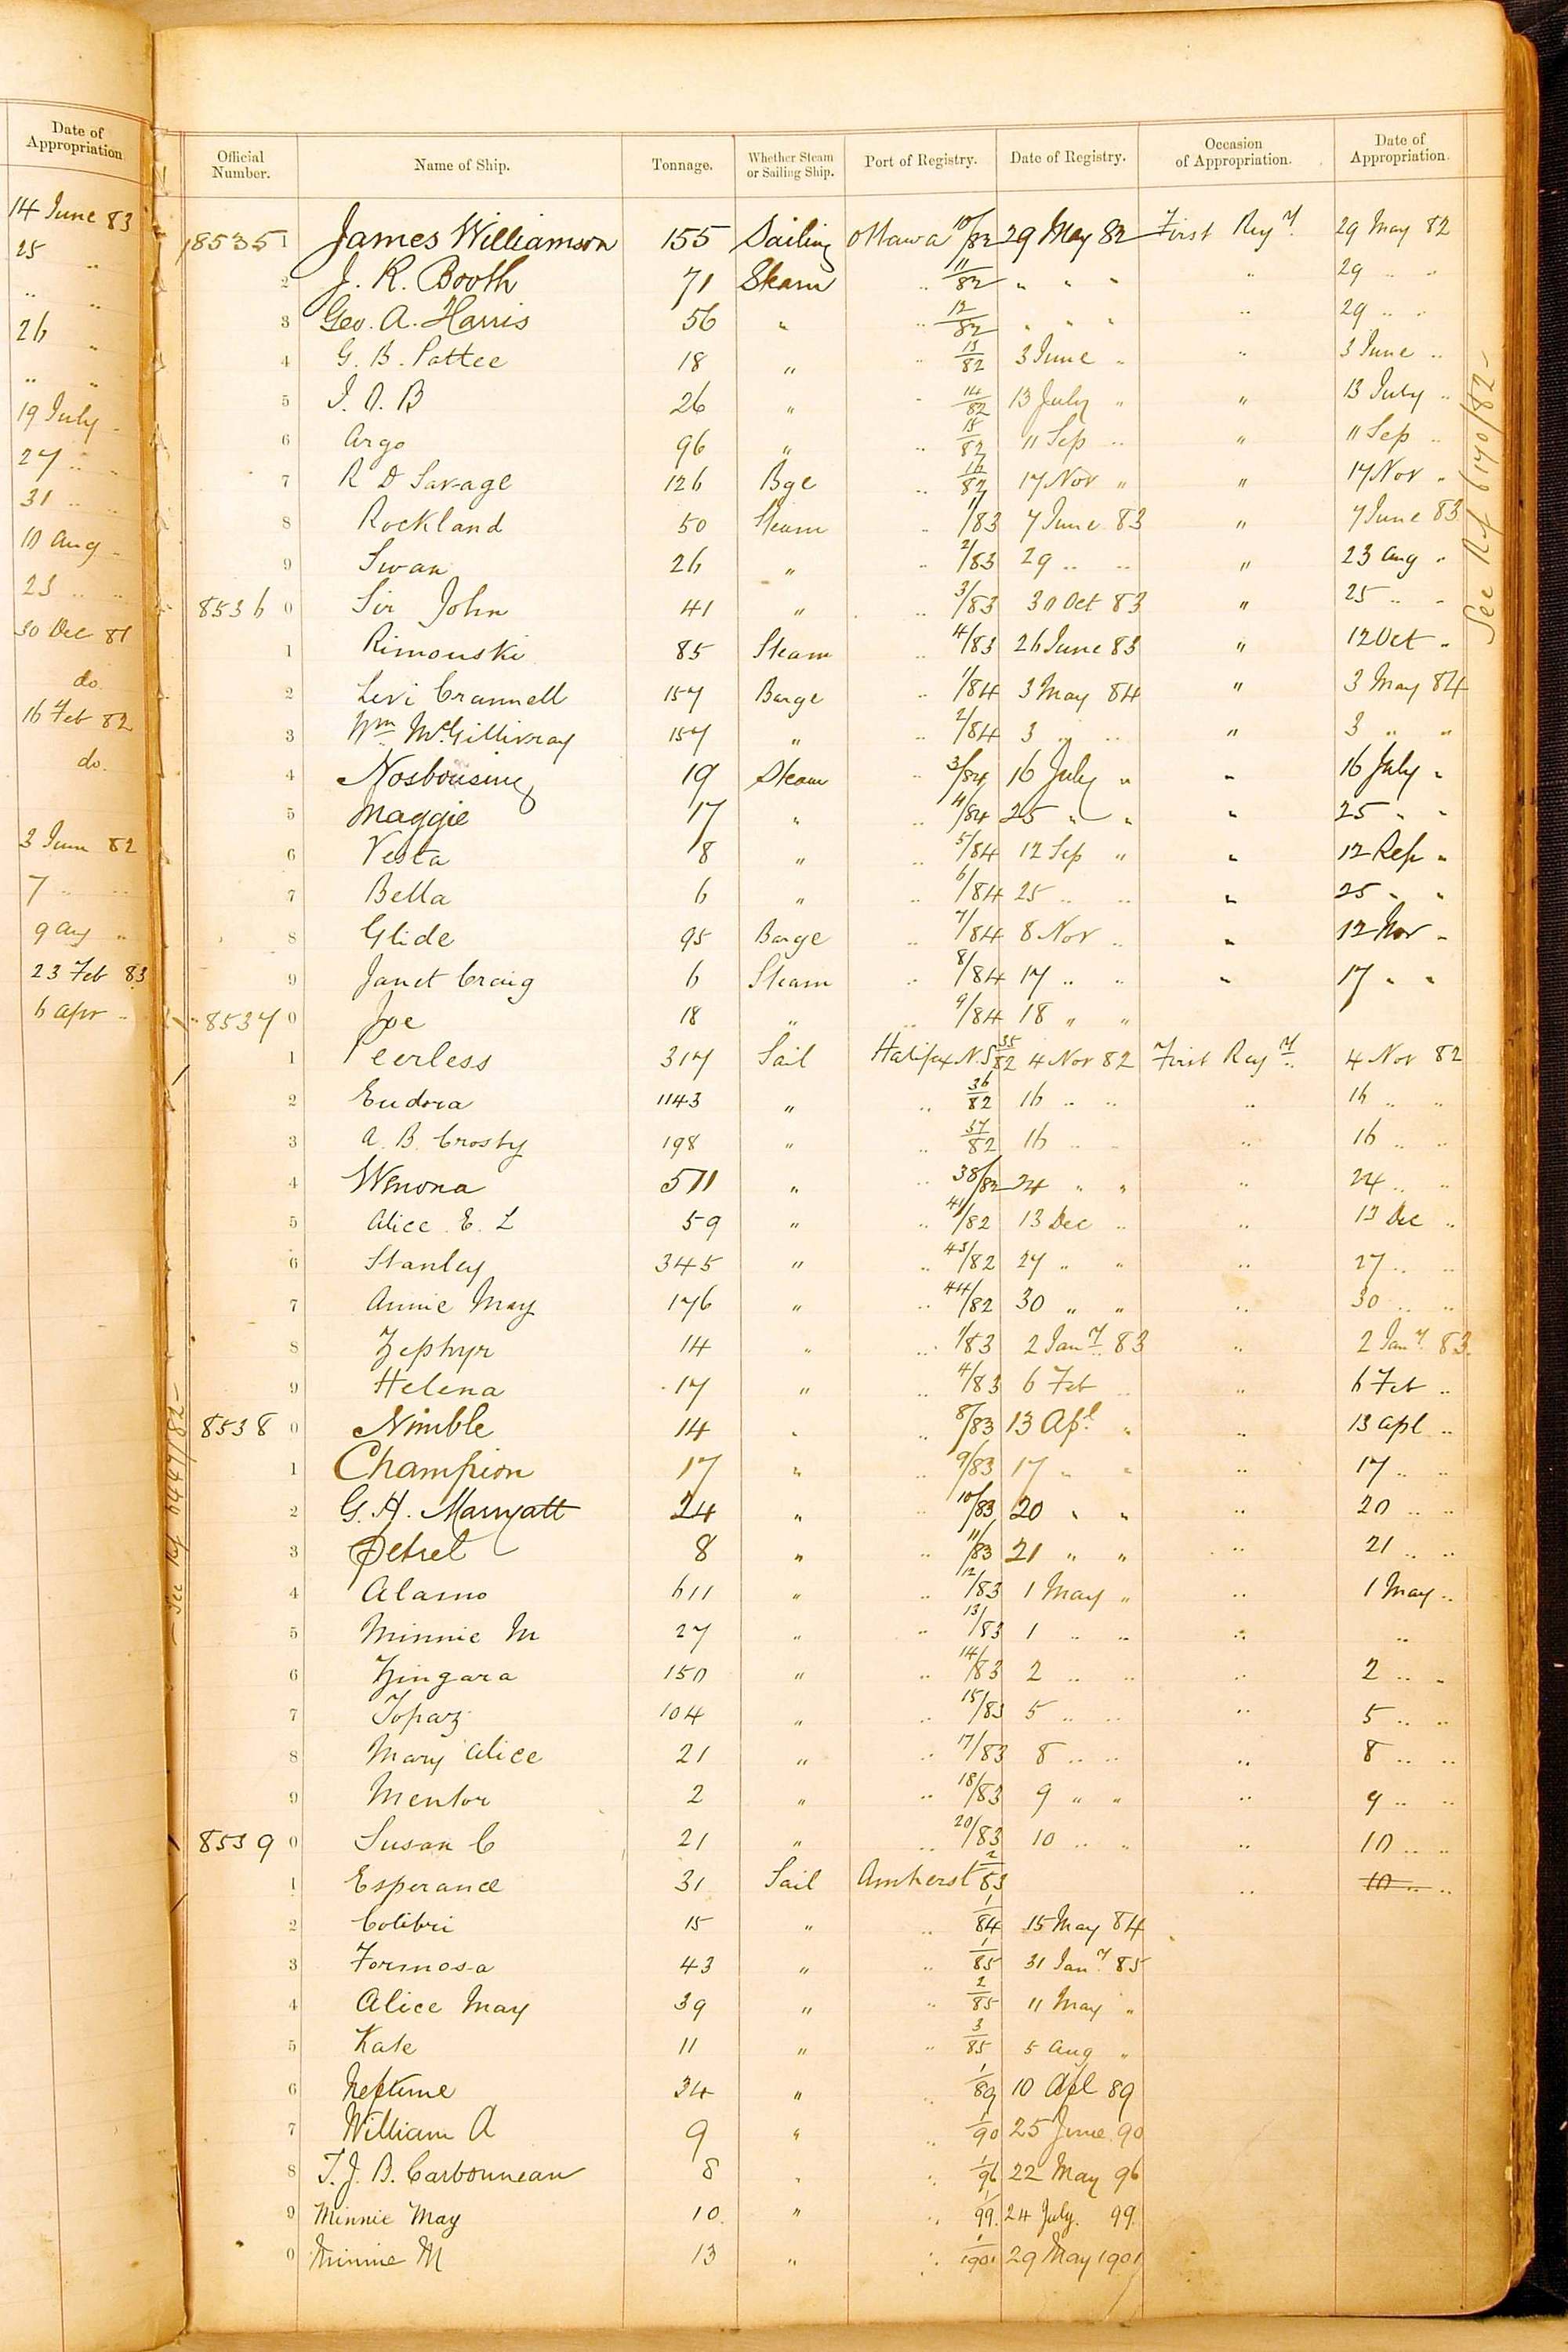 Date of Appropriation
14 June 83
25 "
" "
26 "
" "
19 July "
27 " "
31 " "
10 Aug "
23 " "
30 Dec 81
do.
16 Feb 82
do.
3 June 82
7 " "
9 Aug "
23 Feb 83
6 Apr "
Official Number. Name of Ship. Tonnage. Whether Steam or Sailing Ship. Port of Registry. Date of Registry. Occasion of Appropriation. Date of Appropriation.
85351 James Williamson 155 Sailing Ottawa 10/82 29 May 82 First Regy. 29 May 82
2 J. R. Booth 71 Steam " 11/82 " " " " 29 " "
3 Geo. A. Harris 56 " " 12/82 " " " " 29 " "
4 G. B. Pattee 18 " " 13/82 3 June " " 3 June "
5 J. O. B 26 " " 14/82 13 July " " 13 July "
6 Argo 96 " " 15/82 11 Sep " " 11 Sep "
7 R D Savage 126 Bge " 16/82 17 Nov " " 17 Nov "
8 Rockland 50 Steam " 1/83 7 June 83 " 7 June 83
9 Swan 26 " " 2/83 29 " " " 23 Aug "
8536 0 Sir John 41 " " 3/83 30 Oct 83 " 25 " "
1 Rimouski 85 Steam " 4/83 26 June 83 " 12 Oct "
2 Levi Crannell 157 Barge " 1/84 3 May 84 " 3 May 84
3 Wm McGillivray 157 " " 2/84 3 " " " 3 " "
4 Nosbousing 19 Steam " 3/84 16 July " " 16 July "
5 Maggie 17 " " 4/84 25 " " " 25 " "
6 Vesta 8 " " 5/84 12 Sep " " 12 Sep "
7 Bella 6 " " 6/84 25 " " " 25 " "
8 Glide 95 Barge " 7/84 8 Nov " " 12 Nov "
9 Janet Craig 6 Steam " 8/84 17 " " " 17 " "
8537 0 Joe 18 " " 9/84 18 " "
1 Peerless 317 Sail Halifax N.S 35/82 4 Nov 82 First Regy. 4 Nov 82
2 Eudora 1143 " " 36/82 16 " " " 16 " "
3 A. B. Crosby 198 " " 37/82 16 " " " 16 " "
4 Wenona 511 " " 38/82 24 " " " 24 " "
5 Alice E. L 59 " " 41/82 13 Dec " " 13 Dec "
6 Stanley 345 " " 43/82 27 " " " 27 " "
7 Annie May 176 " " 44/82 30 " " " 30 " "
8 Zephyr 14 " " 1/83 2 Jany. 83 " 2 Jany. 83.
9 Helena 17 " " 4/83 6 Feb " " 6 Feb "
8538 0 Nimble 14 " " 8/83 13 Apl " " 13 Apl "
1 Champion 17 " " 9/83 17 " " " 17 " "
2 G. H. Marryatt 24 " " 10/83 20 " " " 20 " "
3 Petrel 8 " " 11/83 21 " " " 21 " "
4 Alamo 611 " " 12/83 1 May " " 1 May "
5 Minnie M 27 " " 13/83 1 " " " "
6 Zingara 150 " " 14/83 2 " " " 2 " "
7 Topaz 104 " " 15/83 5 " " " 5 " "
8 Mary Alice 21 " " 17/83 8 " " " 8 " "
9 Mentor 2 " " 18/83 9 " " " 9 " "
8539 0 Susan C 21 " " 20/83 10 " " " 10 " "
1 Esperance 31 Sail Amherst 2/83 " 10 " "
2 Colibri 15 " " 1/84 15 May 84
3 Formosa 43 " " 1/85 31 Jany. 85
4 Alice May 39 " " 2/85 11 May "
5 Kate 11 " " 3/85 5 Aug "
6 Neptune 34 " " 1/89 10 Apl 89
7 William A 9 " " 1/90 25 June 90
8 T. J. B. Carbonneau 8 " " 1/96 22 May 96
9 Minnie May 10 " " 1/99. 24 July. 99.
0 Minnie M 13 " " 1/1901 29 May 1901
See Rf 6170/82
See Rf 6447/82